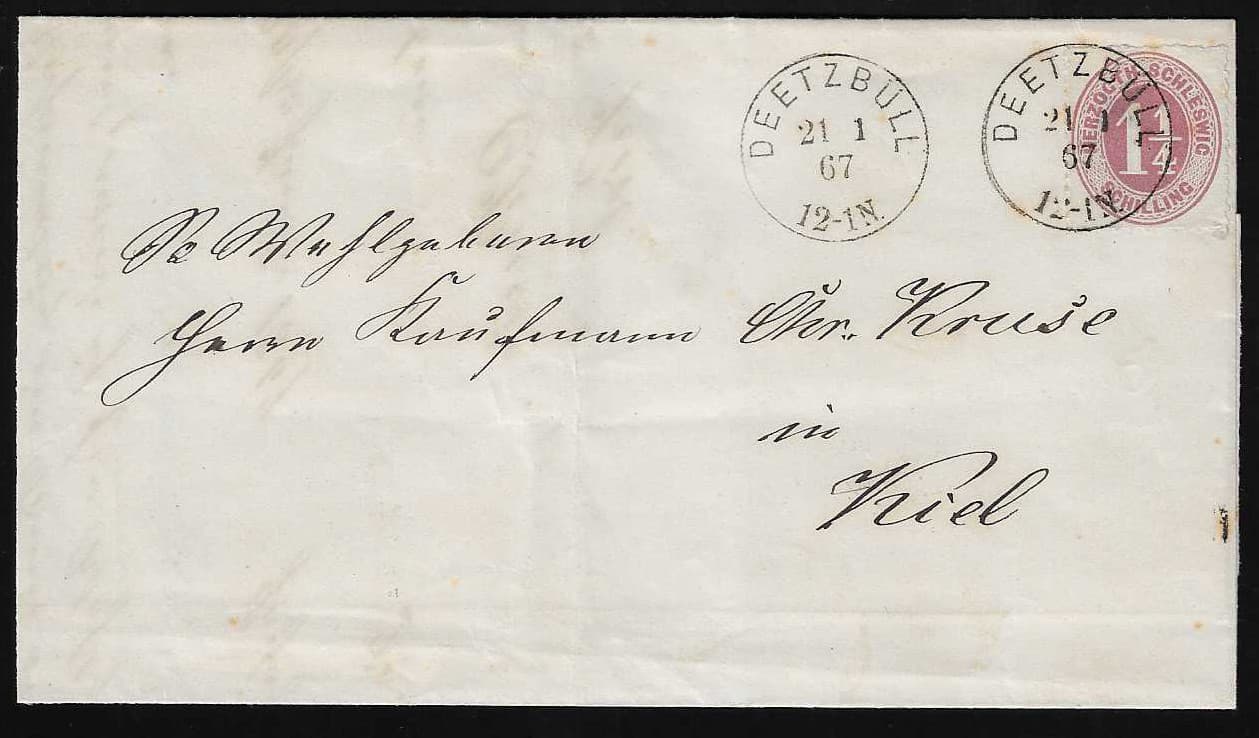 DEETZBÜLL
21 1
67
12-1 N.
DEETZBÜLL
21 1
67
12-1 N.
HERZOGTH. SCHLESWIG
1 1/4
SCHILLING
Sr Wohlgeboren
Herrn Kaufmann Chr. Kruse
in
Kiel